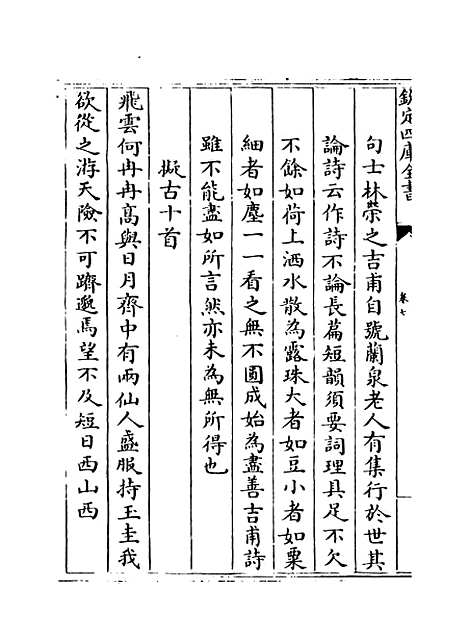 欽定四庫全書
卷七
句士林榮之吉甫自號蘭泉老人有集行於世其
論詩云作詩不論長篇短韻須要詞理具足不欠
不餘如荷上洒水散為露珠大者如豆小者如粟
細者如塵一一看之無不圓成始為盡善吉甫詩
雖不能盡如所言然亦未為無所得也
擬古十首
飛雲何冉冉高與日月齊中有兩仙人盛服持玉圭我
欲從之游天險不可躋邈焉望不及短日西山西